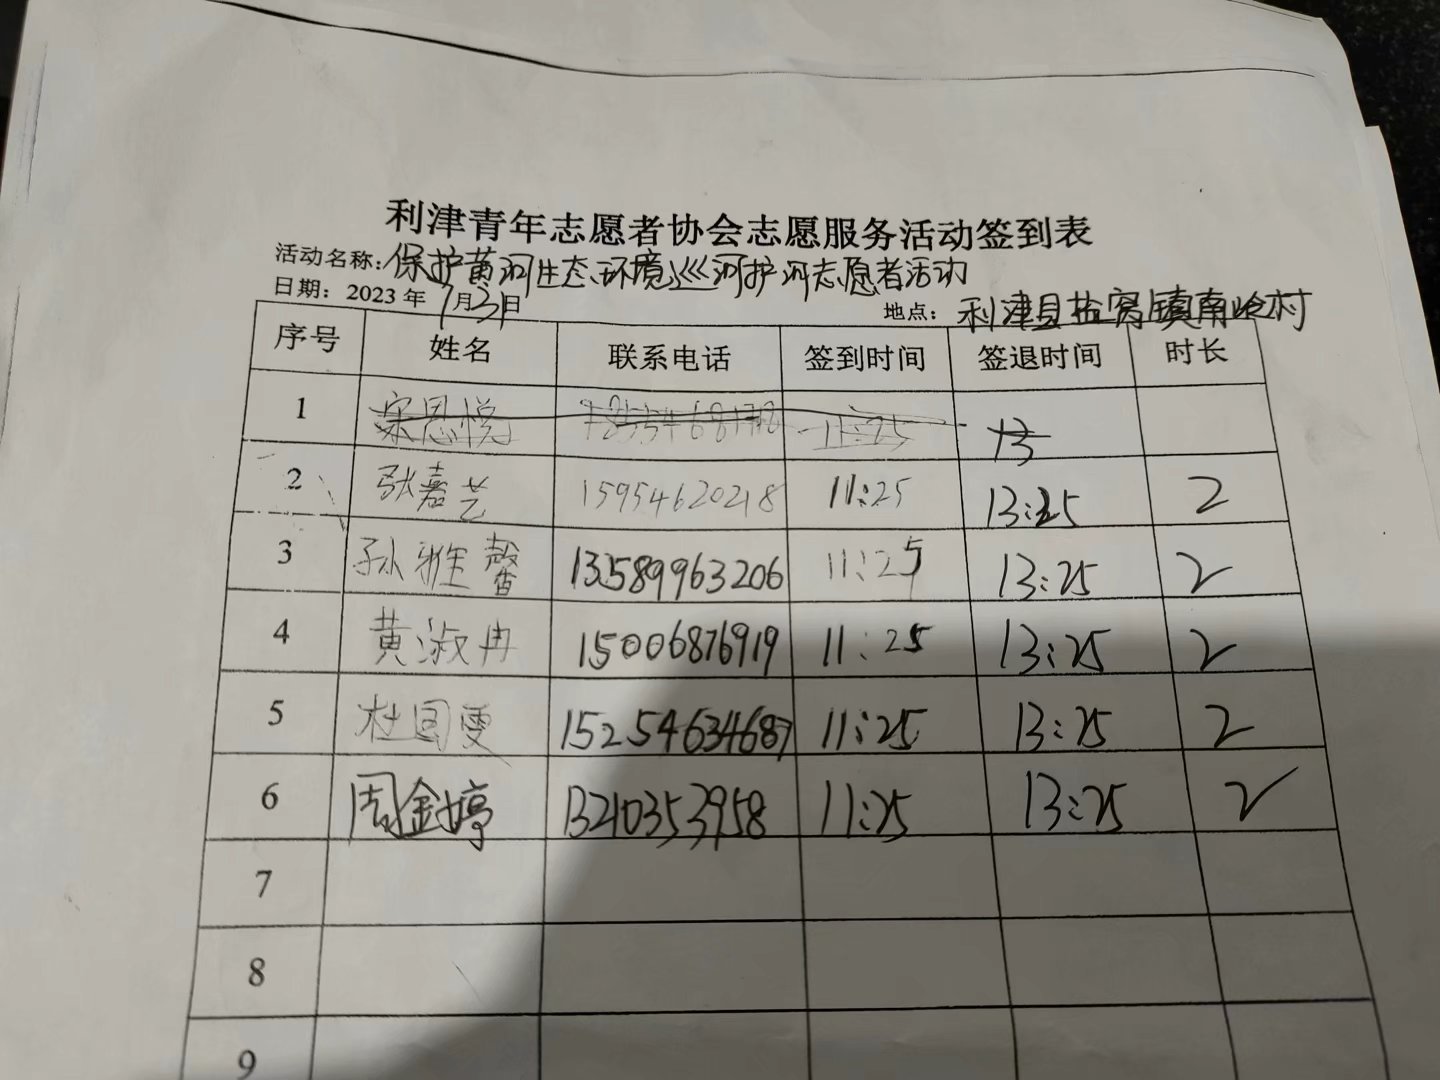 利津青年志愿者协会志愿服务活动签到表
活动名称:保护黄河生态环境巡河护河志愿者活动
日期：2023年7月31日 地点：利津县盐窝镇南岭村
序号 姓名 联系电话 签到时间 签退时间 时长
1 宋思悦 11:25 13
2 张嘉艺 15954620218 11:25 13:25 2
3 孙雅馨 13589963206 11:25 13:25 2
4 黄淑冉 15006876919 11:25 13:25 2
5 杜国雯 15254634687 11:25 13:25 2
6 周金婷 13210353958 11:25 13:25 2
7
8
9